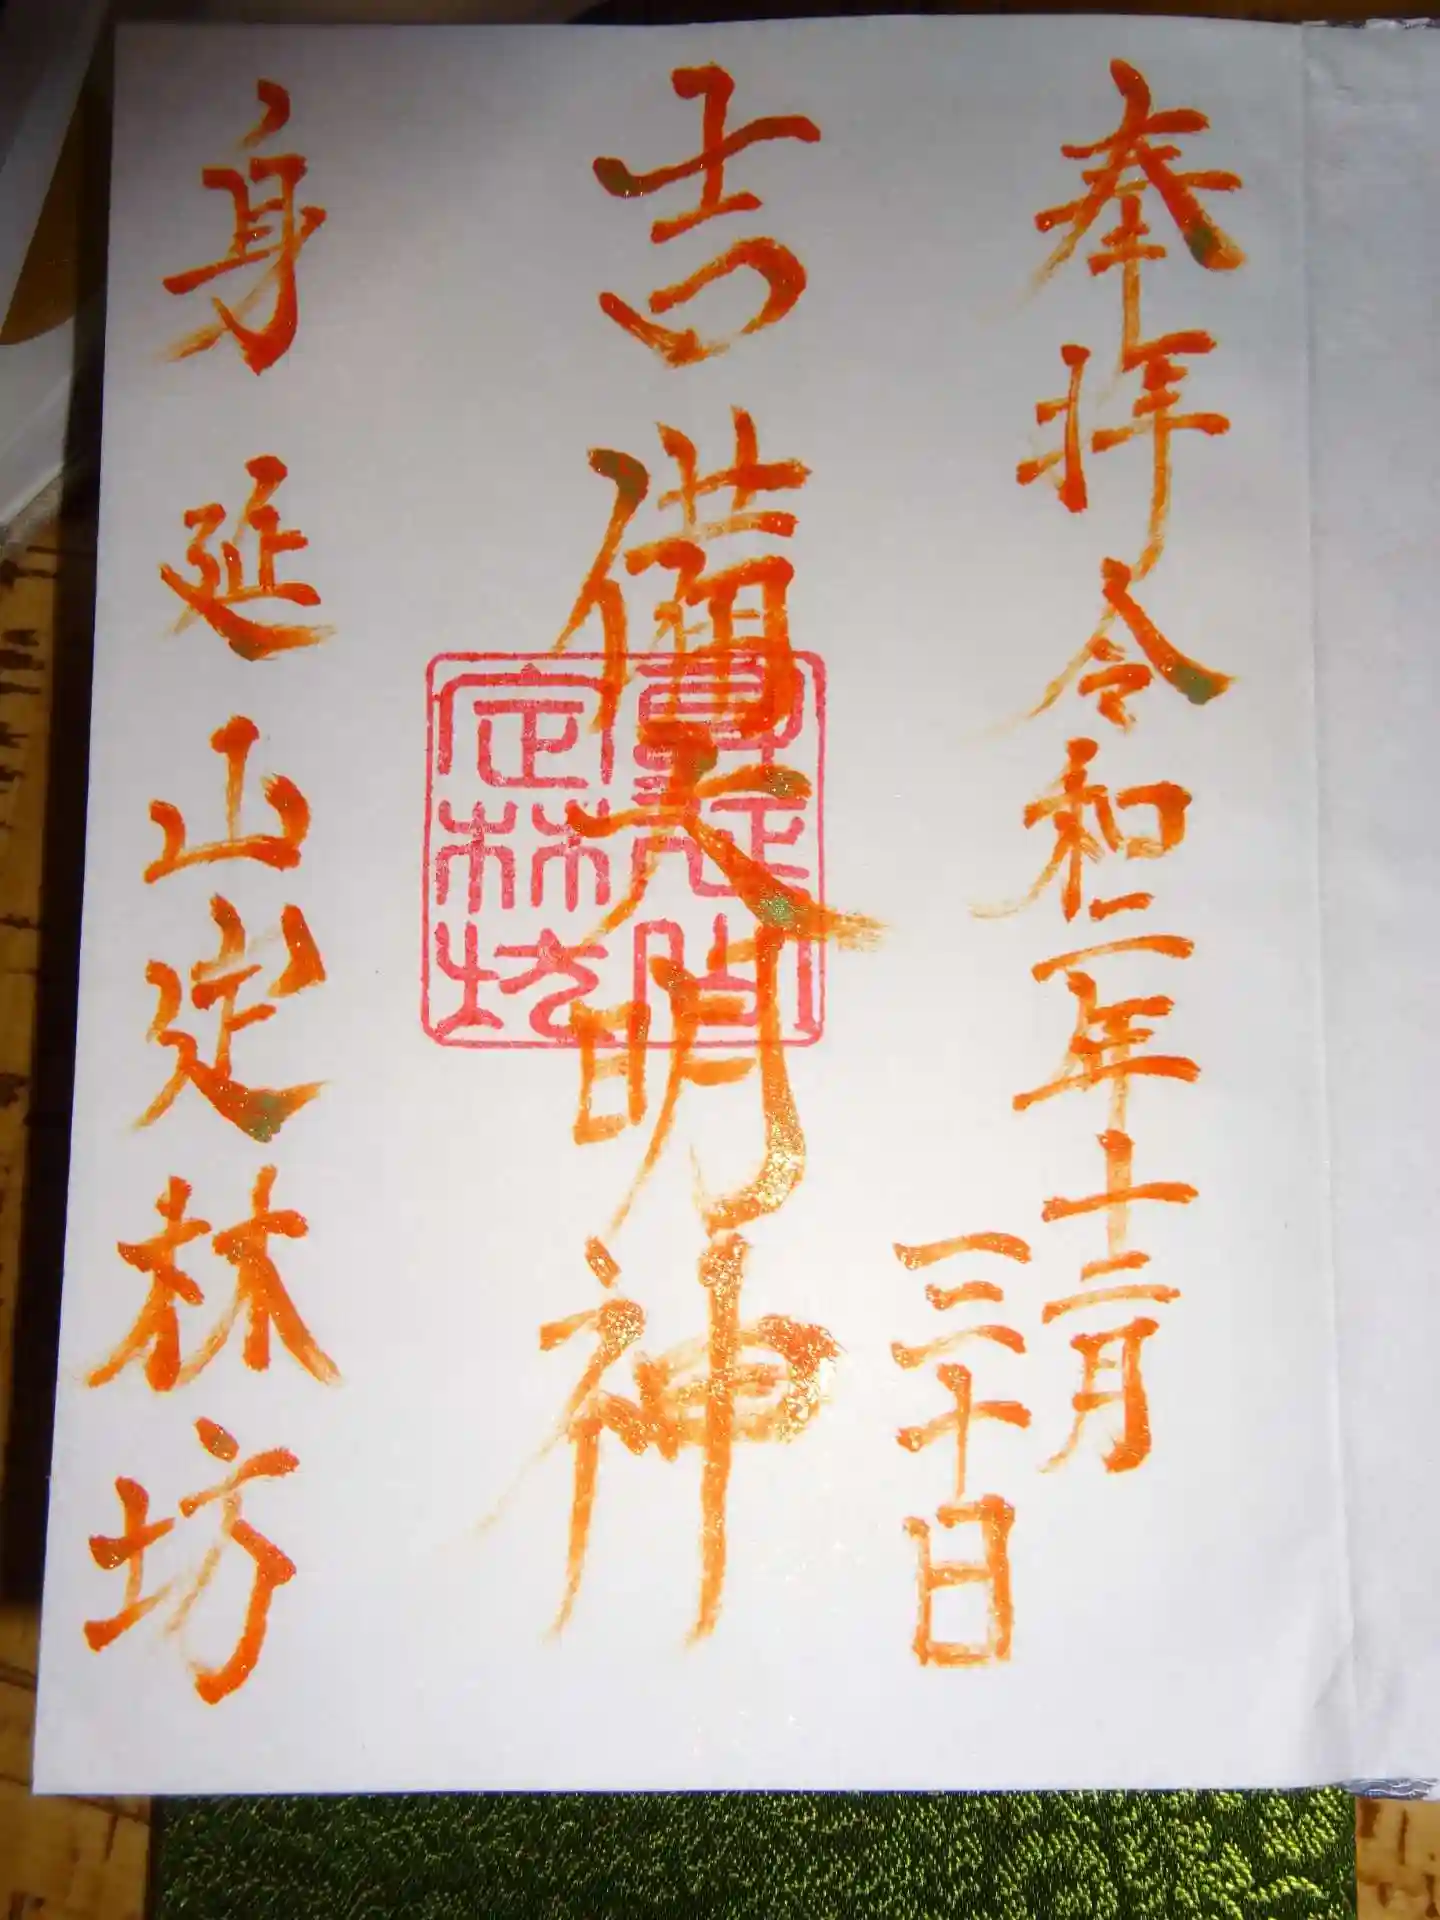 奉拝 令和二年十二月
三十日
吉備大明神
身延山
定林坊
身延山定林坊